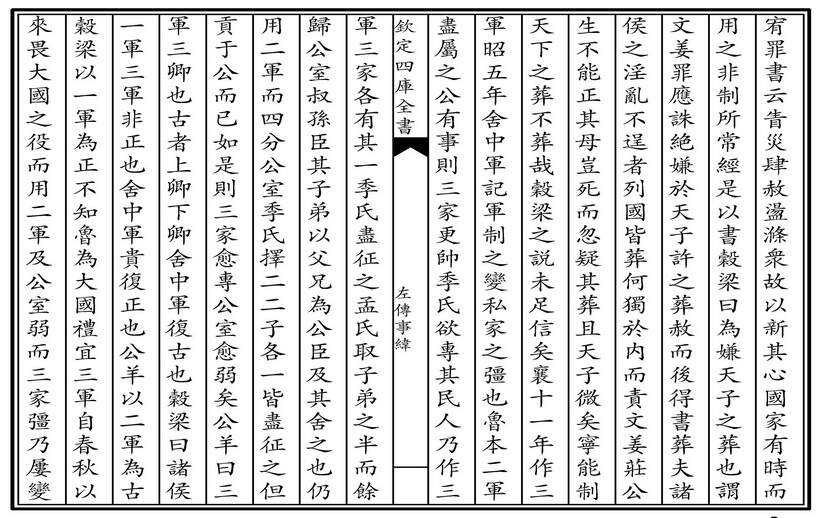 宥罪書云眚災肆赦盪滌衆故以新其心國家有時而
用之非制所常經是以書穀梁曰為嫌天子之葬也謂
文姜罪應誅絕嫌於天子許之葬赦而後得書葬夫諸
侯之淫亂不逞者列國皆葬何獨於内而責文姜莊公
生不能正其母豈死而忽疑其葬且天子微矣寧能制
天下之葬不葬哉穀梁之説未足信矣襄十一年作三
軍昭五年舍中軍記軍制之變私家之彊也魯本二軍
盡屬之公有事則三家更帥季氏欲專其民人乃作三
欽定四庫全書
左傳事緯
軍三家各有其一季氏盡征之孟氏取子弟之半而餘
歸公室叔孫臣其子弟以父兄為公臣及其舍之也仍
用二軍而四分公室季氏擇二二子各一皆盡征之但
貢于公而已如是則三家愈專公室愈弱矣公羊曰三
軍三卿也古者上卿下卿舍中軍復古也穀梁曰諸侯
一軍三軍非正也舍中軍貴復正也公羊以二軍為古
穀梁以一軍為正不知魯為大國禮宜三軍自春秋以
來畏大國之役而用二軍及公室弱而三家彊乃屢變